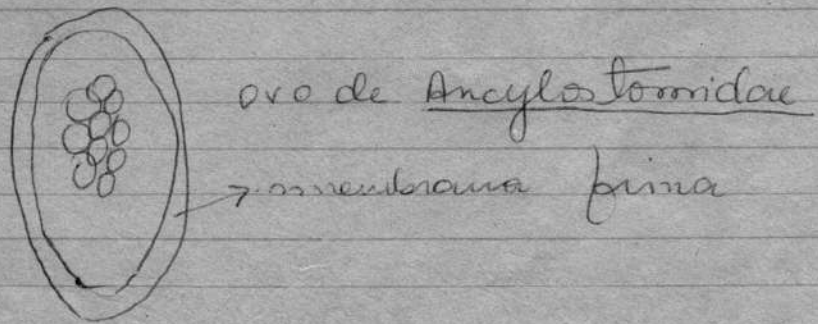 ovo de Ancylostomidae
membrana fina